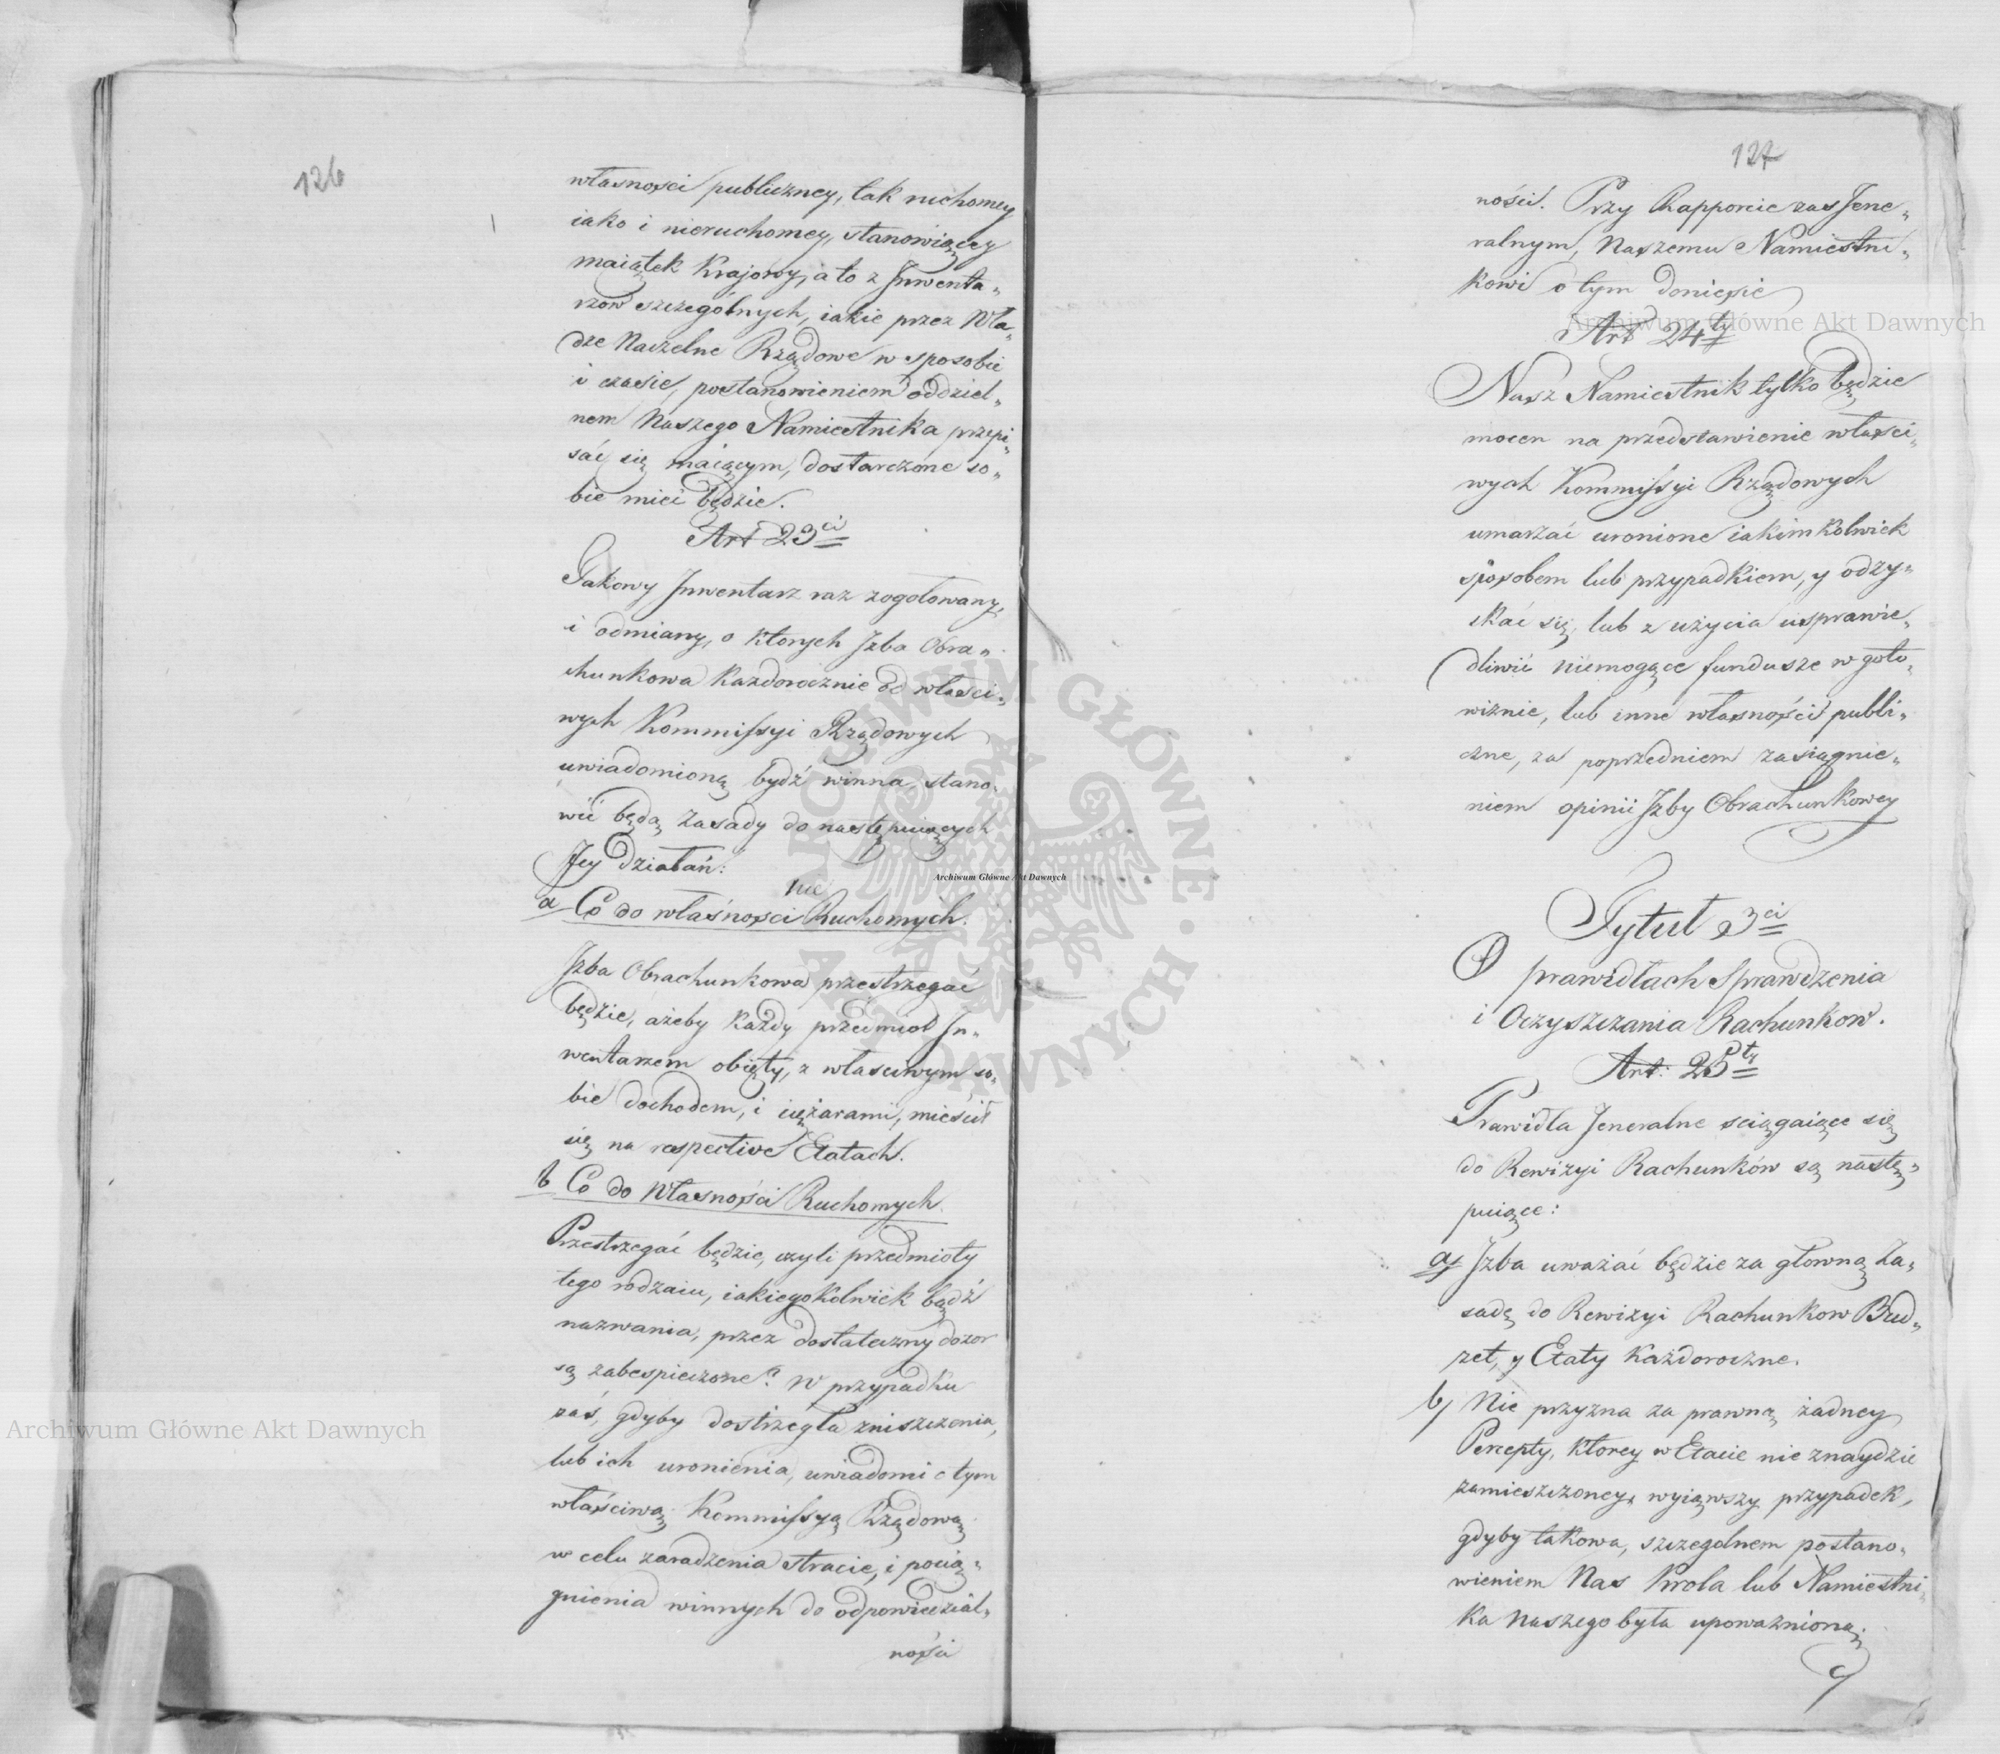 126
własności publiczney, tak ruchomey
iako i nieruchomey, stanowiącey
maiątek Krajowy, a to z Inwenta„
rzow szczególnych, iakie przez Wła„
dze Naczelne Rządowe w sposobie
i czasie, postanowieniem oddziel„
nem Naszego Namiestnika przepi„
sać się maiącym, dostarczone so„
bie mieć będzie.
Art 23ci
Takowy Inwentarz raz zogotowany,
i odmiany, o ktorych Izba Obra„
chunkowa każdorocznie od właści„
wych Kommissyi Rządowych
uwiadomioną bydź winna, stano„
wić będą zasady do następuiących
Jey działań:
nie
a Co do własności Ruchomych.
Izba Obrachunkowa przestrzegać
będzie, ażeby każdy przedmiot In„
wentarzem obięty, z właściwym so„
bie dochodem, i ciężarami, mieścił
się na respective Etatach.
b Co do Własności Ruchomych.
Przestrzegać będzie, czyli przedmioty
tego rodzaiu, iakiegokolwiek bądź
nazwania, przez dostateczny dozor
są zabespieczone? W przypadku
zaś, gdyby dostrzegła zniszczenia,
lub ich uronienia, uwiadomi o tym
właściwą Kommissyą Rządową
w celu zaradzenia stracie, i pocią„
gnienia winnych do odpowiedzial„
ności
127
ności. Przy Rapporcie zas Jene„
ralnym, Naszemu Namiestni„
kowi o tym doniesie
Art 24ty
Nasz Namiestnik tylko będzie
mocen na przedstawienie właści„
wych Kommissyi Rządowych
umarzać uronione iakimkolwiek
sposobem lub przypadkiem, y odzy„
skać się, lub z użycia usprawie„
dliwić niemogące fundusze w goto„
wiznie, lub inne własności publi„
czne, za poprzedniem zasiągnie„
niem opinii Izby Obrachunkowey
Tytuł 3ci
O prawidłach Sprawdzenia
i Oczyszczania Rachunkow.
Art: 25ty
Prawidła Jeneralne sciągaiące się
do Rewizyi Rachunków są nastę„
puiące:
a) Izba uważać będzie za głowną Za„
sadę do Rewizyi Rachunkow Bud„
żet, y Etaty Każdoroczne.
b) Nie przyzna za prawną żadney
Percepty, ktorey w Etacie nie znaydzie
zamieszczoney, wyiąwszy przypadek,
gdyby takowa, szczegolnem postano„
wieniem Nas Krola lub Namiestni„
ka Naszego była upoważnioną.
c)
Archiwum Główne Akt Dawnych
Archiwum Główne Akt Dawnych
Archiwum Główne Akt Dawnych
ARCHIWUM GŁÓWNE AKT DAWNYCH